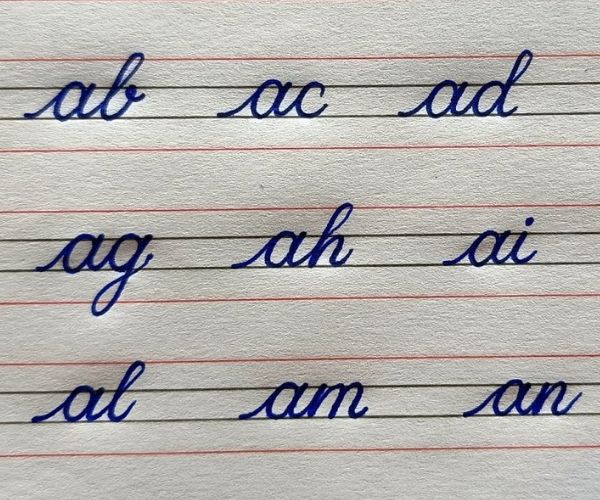 ab ac ad
ag ah ai
al am an